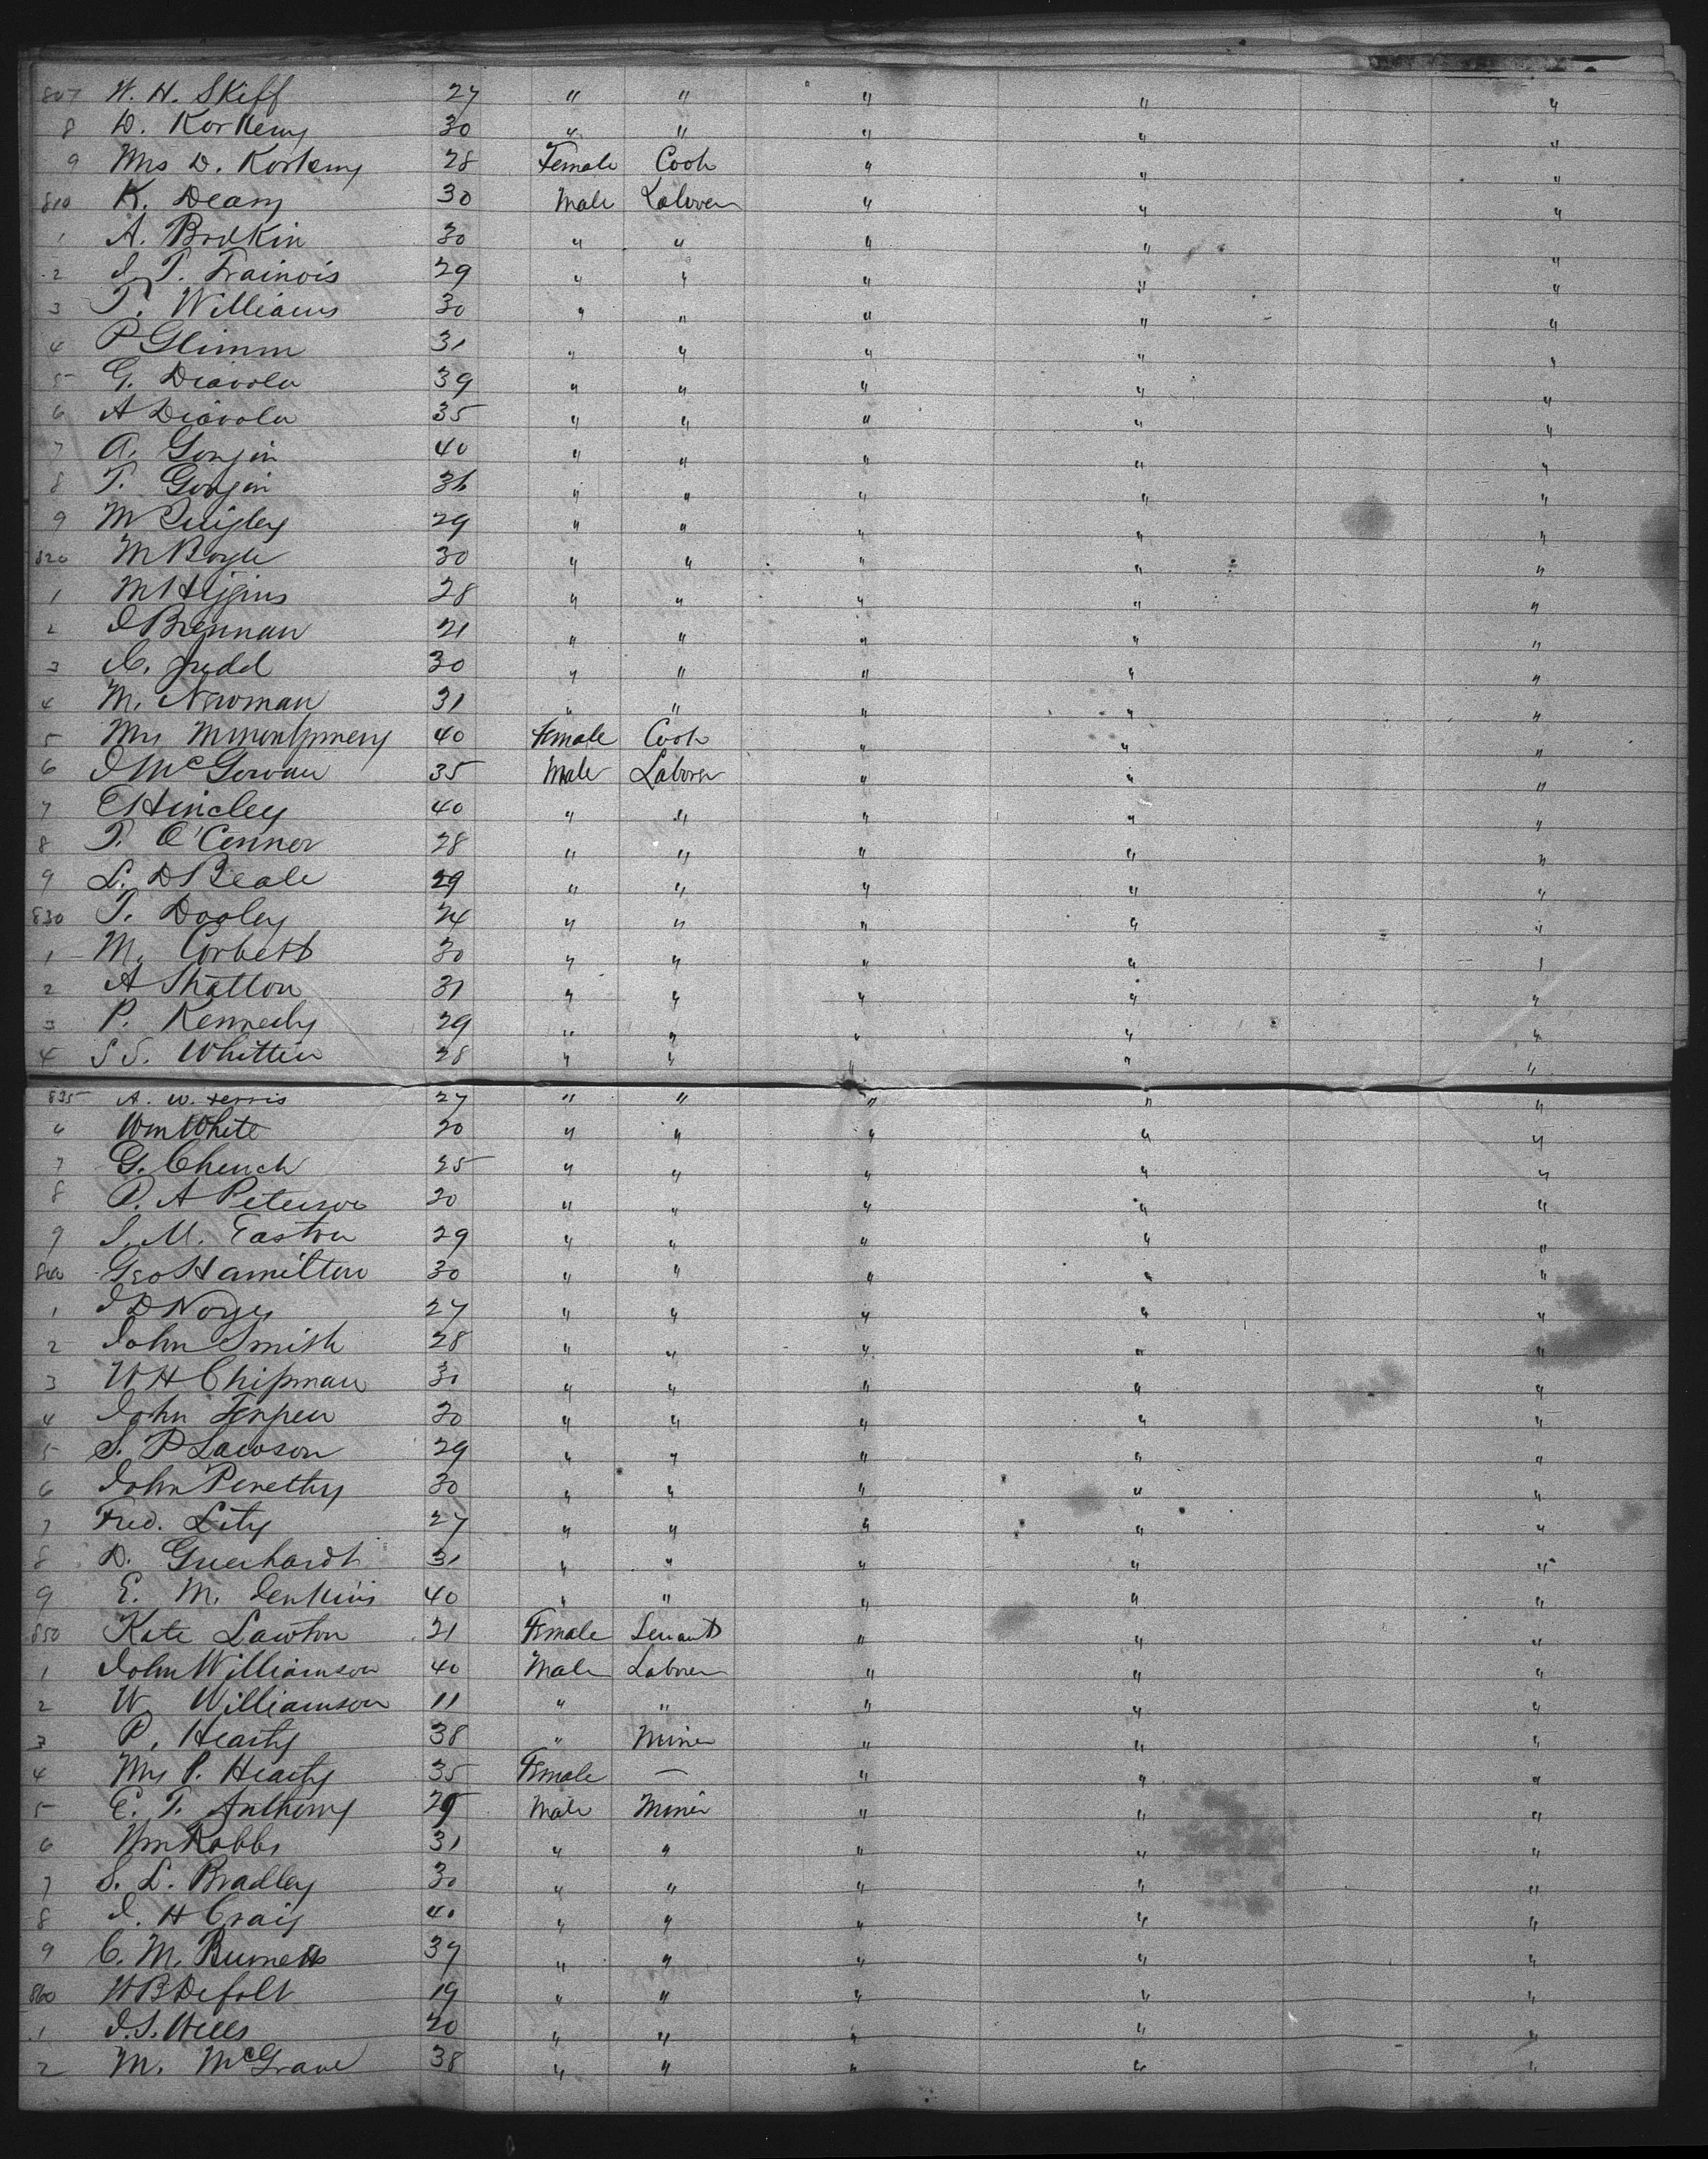 807 W. H. Skiff 27 " " " " "
8 D. Korkemy 30 " " " " "
9 Mrs D. Korkemy 28 Female Cook " " "
810 K. Deany 30 Male Laborer " " "
1 A. Brokin 30 " " " " "
2 29 " " " " "
3 T. Williams 30 " " " " "
4 P Glimm 31 " " " " "
5 G. Diavola 39 " " " " "
6 A Diavola 35 " " " " "
7 A. Gonjin 40 " " " " "
8 T. Gonjin 36 " " " " "
9 M Quigley 29 " " " " "
820 M Boyle 30 " " " " "
1 M Higgins 28 " " " " "
2 J Brennan 21 " " " " "
3 C. Judd 30 " " " " "
4 M. Newman 31 " " " " "
5 Mrs M Montgomery 40 Female Cook " " "
6 J McGowan 35 Male Laborer " " "
7 E Hincley 40 " " " " "
8 T. O'Conner 28 " " " " "
9 L. D Beale 29 " " " " "
830 T. Dooley 24 " " " " "
1 M. Corbett 30 " " " " "
2 A Shatton 31 " " " " "
3 P. Kennedy 29 " " " " "
4 S S. Whittier 28 " " " " "
835 A. W. Ferris 27 " " " " "
6 Wm White 20 " " " " "
7 G. Church 25 " " " " "
8 P. A Peterson 20 " " " " "
9 S. M. Easton 29 " " " " "
840 Geo Hamilton 30 " " " " "
1 J D Noyes 27 " " " " "
2 John Smith 28 " " " " "
3 W H Chipman 31 " " " " "
4 John 20 " " " " "
5 S. P Lawson 29 " " " " "
6 John Penethy 30 " " " " "
7 Fred. Lity 27 " " " " "
8 D. Guerhardt 31 " " " " "
9 E. M. Jenkins 40 " " " " "
850 Kate Lawton 21 Female Servant " " "
1 John Williamson 40 Male Laborer " " "
2 W. Williamson 11 " " " " "
3 P. Hearty 38 " Miner " " "
4 Mrs P. Hearty 35 Female — " " "
5 E. T. Anthony 29 Male Miner " " "
6 Wm Robbs 31 " " " " "
7 S. L. Bradley 30 " " " " "
8 J. H Craig 40 " " " " "
9 C. M. Burnett 37 " " " " "
860 W B Defolt 19 " " " " "
1 J. S. Wells 20 " " " " "
2 M. McGrane 38 " " " " "